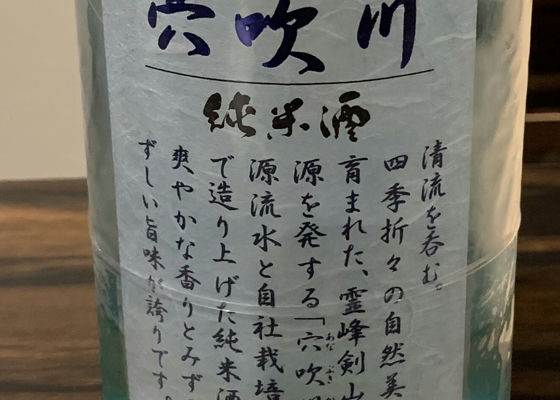 穴吹川
純米酒
清流を呑む。
四季折々の自然美
育まれた、霊峰剣山
源を発する「穴吹
あな ぶき
源流水と自社栽培
で造り上げた純米酒
爽やかな香りとみず
ずしい旨味が誇りです。